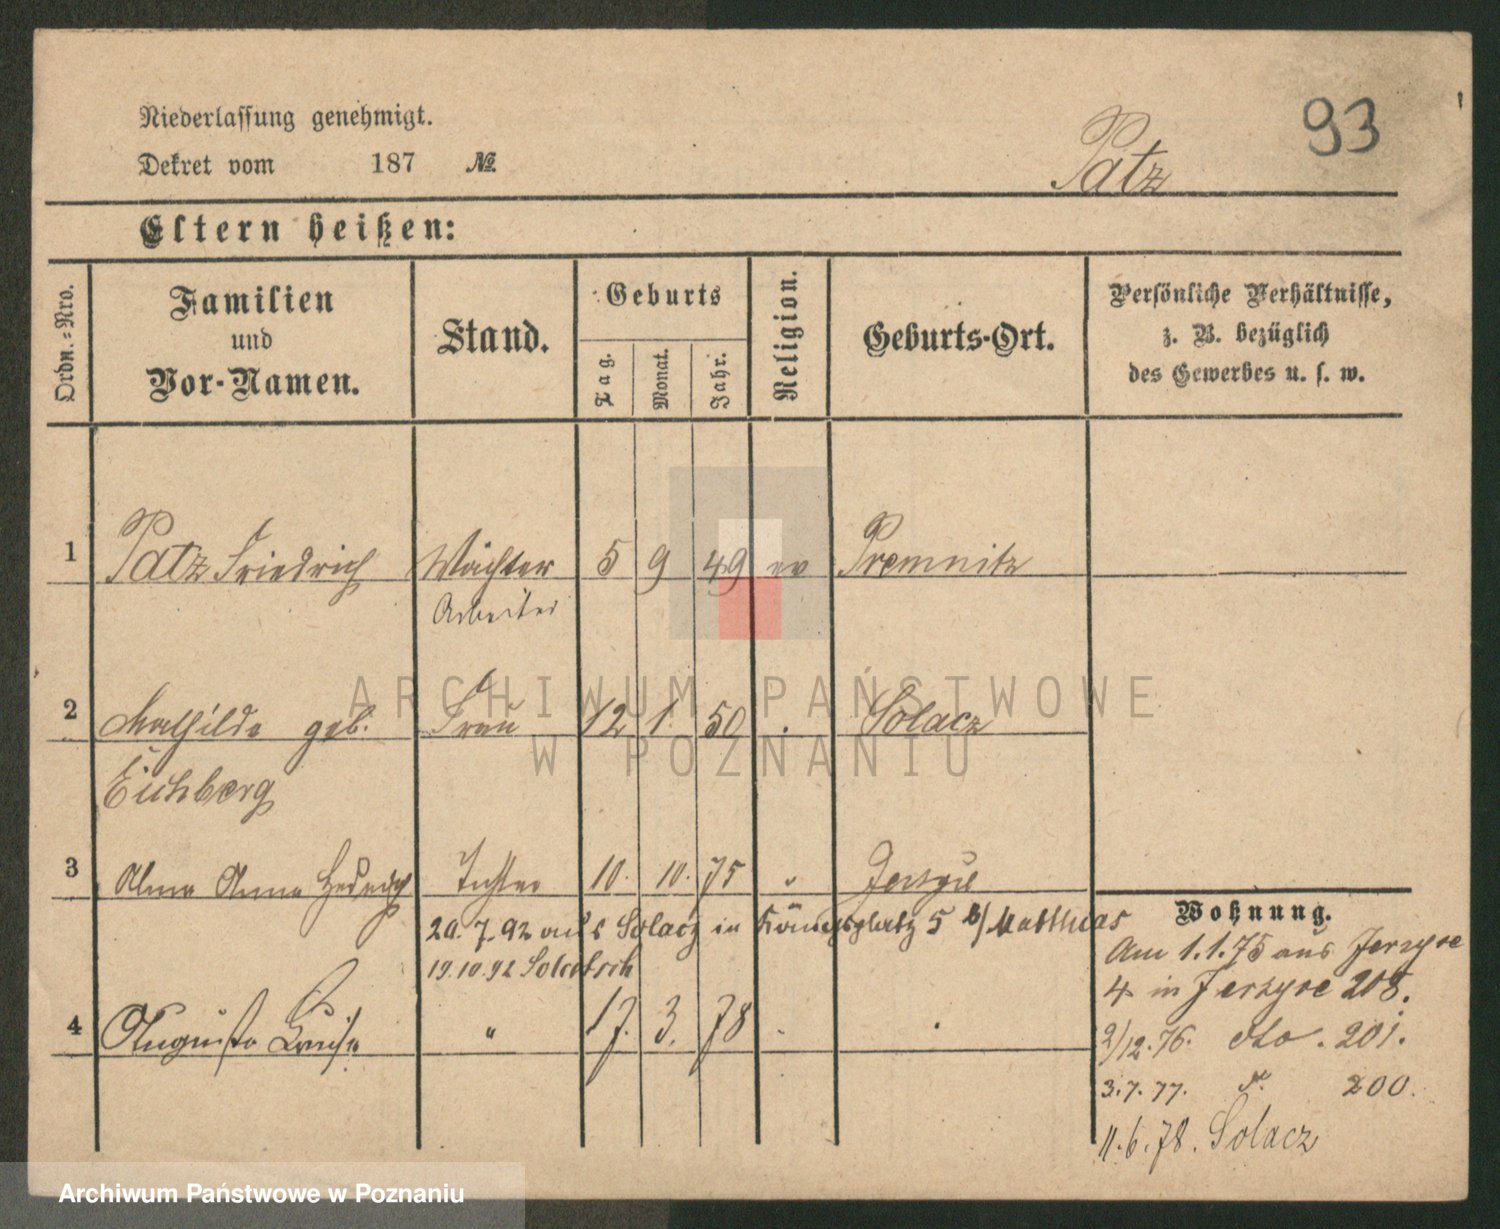 93
Niederlassung genehmigt.
Dekret vom 187 №
Patz
Eltern heißen:
Ordn.-Nro.
Familien
und
Vor-Namen.
Stand.
Geburts
Tag.
Monat.
Jahr.
Religion.
Geburts-Ort.
Persönliche Verhältnisse,
z. B. bezüglich
des Gewerbes u. s. w.
1 Patz Friedrich Wächter 5 9 49 ev Premnitz
Arbeiter
2 Mathilde geb. Frau 12 1 50 Solacz
Eichberg
3 Alma Anna Hedwig Tochter 10. 10. 75 " Jerzyce
Wohnung.
20.7.92 aus Solacz in Königsplatz 5 b/Matthias
19.10.92 Solatsch
4 Auguste Louise " 17. 3. 78
Am 1.1.75 aus Jerzyce
4 in Jerzyce 208.
2/12.76. dto. 201.
3.7.77. d. 200.
11.6.78. Solacz
ARCHIWUM PAŃSTWOWE
W POZNANIU
Archiwum Państwowe w Poznaniu